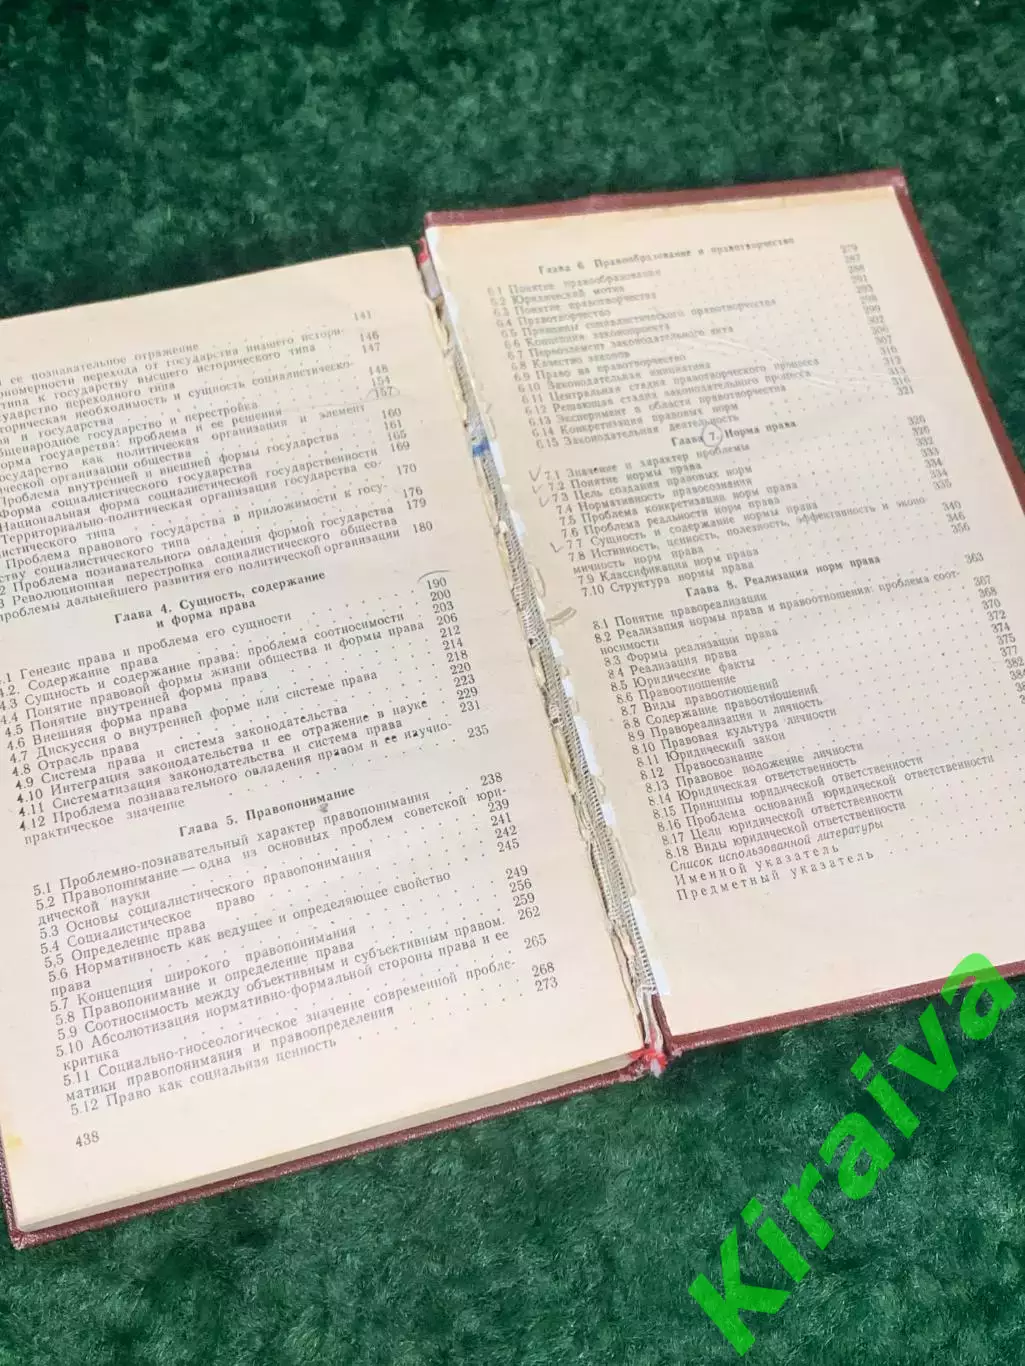 141
и ее познавательное отражение
146
номерности перехода от государства низшего истори-
типа к государству высшего исторического типа
147
государство переходного типа
торическая необходимость и сущность социалистическо-
148
154
государство и перестройка
157
проблема и ее решения
элемент
государство как политическая организация и
160
ческой организации общества
161
Проблема внутренней и внешней формы государства
165
форма социалистического государства
169
Национальная форма социалистической государственности
Территориально-политическая организация государства со-
листического типа
170
Проблема правового государства в приложимости к госу-
ству социалистического типа
176
2 Проблема познавательного овладения формой государства
179
3 Революционная перестройка социалистического общества
180
проблемы дальнейшего развития его политической организации
Глава 4. Сущность, содержание
и форма права
4.1 Генезис права и проблема его сущности
190
4.2. Содержание права
200
4.3 Сущность и содержание права: проблема соотносимости
203
4.4 Понятие правовой формы жизни общества и формы права
206
4.5 Понятие внутренней формы права
212
4.6 Внешняя форма права
214
4.7 Дискуссия о внутренней форме или системе права
218
4.8 Отрасль права
220
4.9 Система права и система законодательства
223
4.10 Интеграция законодательства и ее отражение в науке
229
4.11 Систематизация законодательства и система права
231
4.12 Проблема познавательного овладения правом и ее научно-
практическое значение
235
Глава 5. Правопонимание
5.1 Проблемно-познавательный характер правопонимания
238
5.2 Правопонимание — одна из основных проблем советской юри-
дической науки
239
5.3 Основы социалистического правопонимания
241
5.4 Социалистическое право
242
5.5 Определение права
245
5.6 Нормативность как ведущее и определяющее свойство
права
249
5.7 Концепция широкого правопонимания
256
5.8 Правопонимание и определение права
259
5.9 Соотносимость между объективным и субъективным правом.
262
5.10 Абсолютизация нормативно-формальной стороны права и ее
критика
265
5.11 Социально-гносеологическое значение современной пробле-
матики правопонимания и правоопределения
268
5.12 Право как социальная ценность
273
438
Глава 6. Правообразование и правотворчество
6.1 Понятие правообразования
279
6.2 Юридический мотив
287
6.3 Понятие правотворчества
288
6.4 Правотворчество
291
6.5 Принципы социалистического правотворчества
293
6.6 Концепция законопроекта
298
6.7 Первоэлемент законодательного акта
299
6.8 Качество законов
302
6.9 Право на правотворчество
306
6.10 Законодательная инициатива
307
6.11 Центральная стадия правотворческого процесса
312
6.12 Решающая стадия законодательного процесса
313
6.13 Эксперимент в области правотворчества
316
6.14 Конкретизация правовых норм
321
6.15 Законодательная деятельность
Глава 7. Норма права
7.1 Значение и характер проблемы
326
7.2 Понятие нормы права
7.3 Цель создания правовых норм
332
7.4 Нормативность правосознания
333
7.5 Проблема конкретизации норм права
334
7.6 Проблема реальности норм права
334
7.7 Сущность и содержание нормы права
335
7.8 Истинность, ценность, полезность, эффективность и эконо-
мичность норм права
340
7.9 Классификация норм права
346
7.10 Структура нормы права
356
Глава 8. Реализация норм права
8.1 Понятие правореализации
363
8.2 Реализация нормы права и правоотношения: проблема соот-
носимости
367
8.3 Формы реализации права
368
8.4 Реализация права
370
8.5 Юридические факты
372
8.6 Правоотношение
374
8.7 Виды правоотношений
375
8.8 Содержание правоотношений
377
8.9 Правореализация и личность
382
8.10 Правовая культура личности
8.11 Юридический закон
8.12 Правосознание
8.13 Правовое положение личности
8.14 Юридическая ответственность
8.15 Принципы юридической ответственности
8.16 Проблема оснований юридической ответственности
8.17 Цели юридической ответственности
8.18 Виды юридической ответственности
Список использованной литературы
Именной указатель
Предметный указатель
Kiraiva